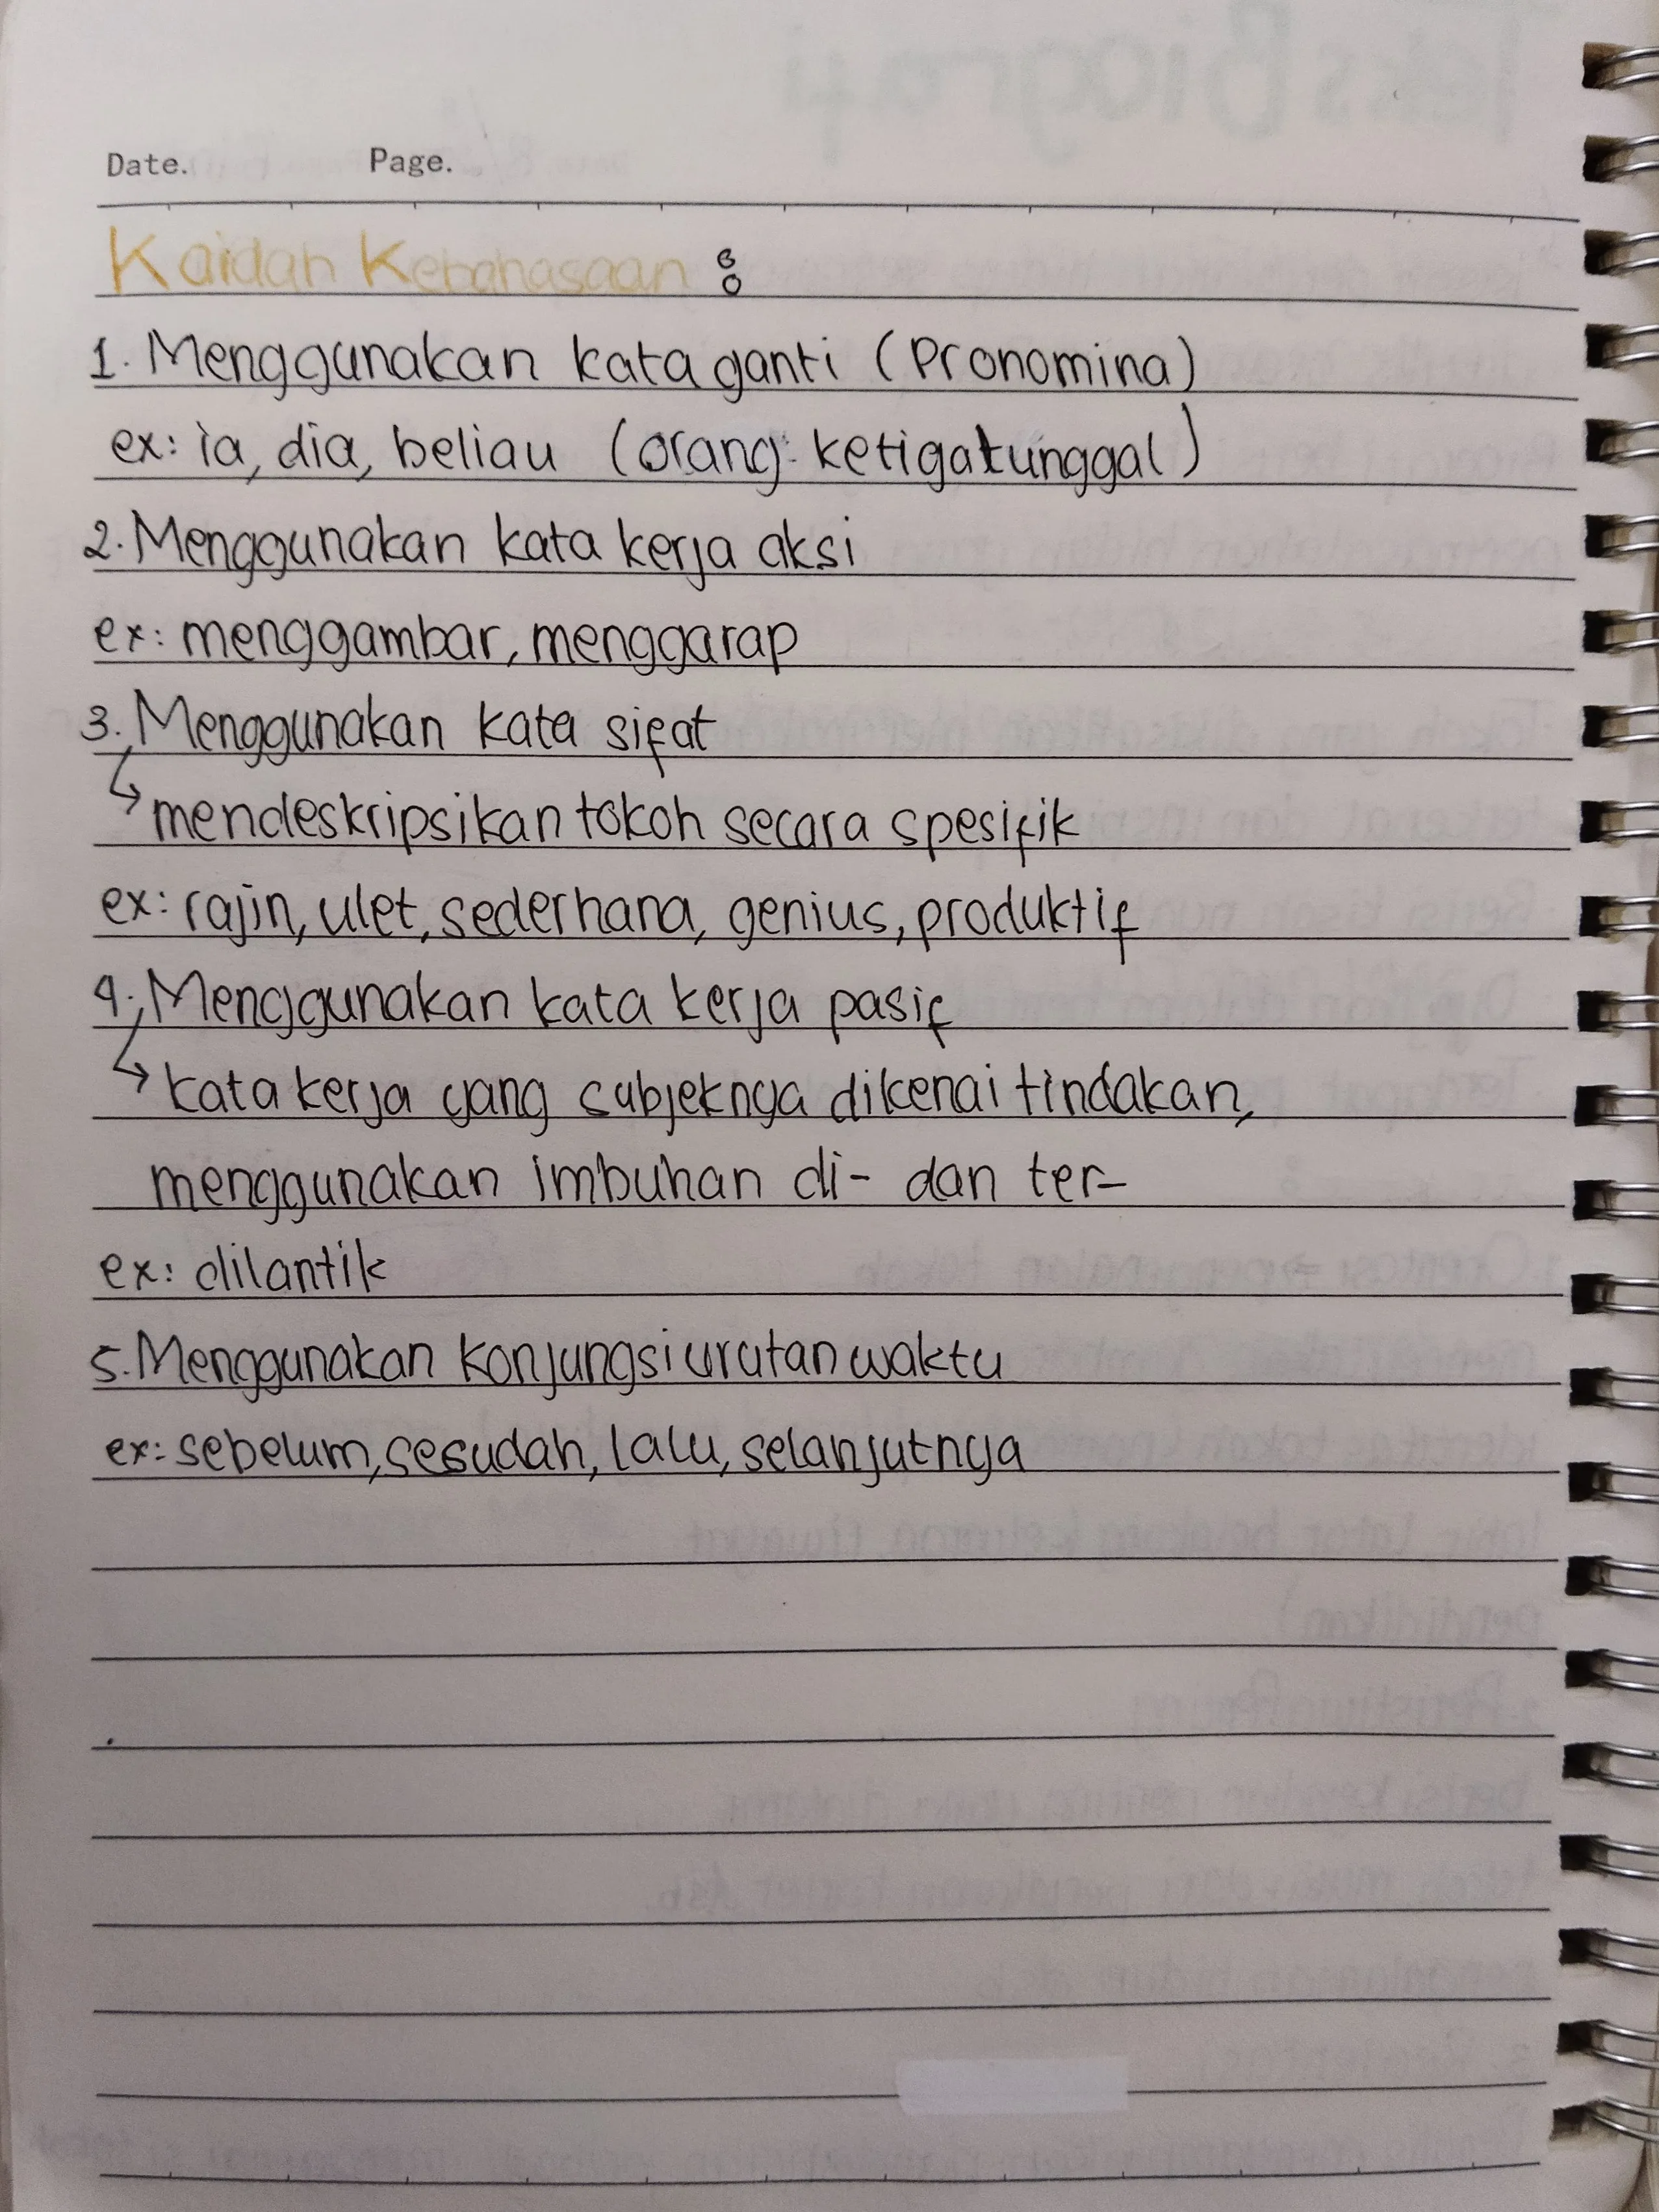 Date. Page.
Kaidah Kebahasaan :
1. Menggunakan kata ganti (Pronomina)
ex: ia, dia, beliau (orang ketiga tunggal)
2. Menggunakan kata kerja aksi
ex: menggambar, menggarap
3. Menggunakan kata sifat
↳ mendeskripsikan tokoh secara spesifik
ex: rajin, ulet, sederhana, genius, produktif
4. Menggunakan kata kerja pasif
↳ kata kerja yang subjeknya dikenai tindakan,
menggunakan imbuhan di- dan ter-
ex: dilantik
5. Menggunakan konjungsi urutan waktu
ex: sebelum, sesudah, lalu, selanjutnya